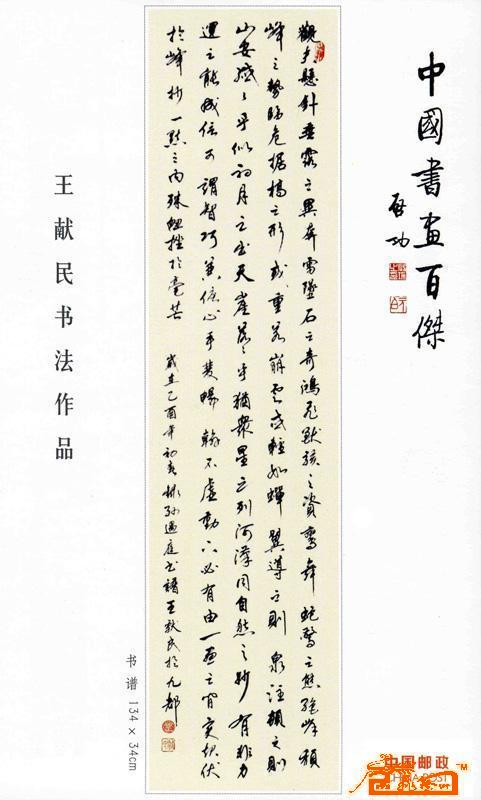 中國書畫百傑
啓功
觀夫懸針垂露之異奔雷墜石之奇鴻飛獸駭之資鸞舞蛇驚之態絕岸頹
峰之勢臨危據槁之形或重若崩雲或輕如蟬翼導之則泉注頓之則
山安纖纖乎似初月之出天崖落落乎猶衆星之列河漢同自然之妙有非力
運之能成信可謂智巧兼優心手雙暢翰不虛動下必有由一畫之間變起伏
於峰杪一點之內殊衄挫於毫芒
歲在乙酉年初夏 孫過庭書譜王獻民於九都
王献民书法作品
书谱 134×34cm
中国邮政
CHINA POST